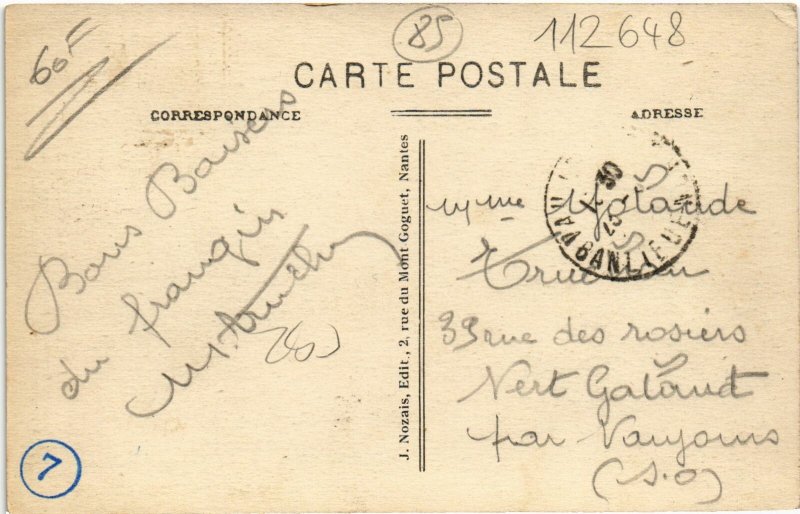 60F
85
112648
CARTE POSTALE
CORRESPONDANCE
ADRESSE
Bons Baisers
du frangin
J. Nozais, Edit., 2, rue du Mont Goguet, Nantes
Mme Yolande
33 rue des rosiers
Vert Galant
par Vaujours
(S.O)
7